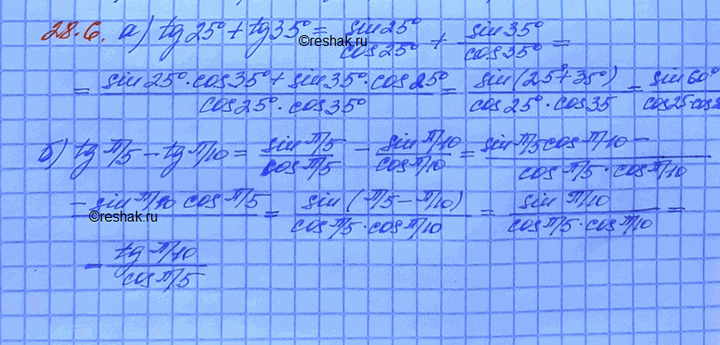 28.6. а) tg 25° + tg 35° = sin 25° / cos 25° + sin 35° / cos 35° =
©reshak.ru
= (sin 25° · cos 35° + sin 35° · cos 25°) / (cos 25° · cos 35°) = sin (25° + 35°) / (cos 25° · cos 35) = sin 60° / (cos 25 · cos
б) tg π/5 − tg π/10 = sin π/5 / cos π/5 − sin π/10 / cos π/10 = (sin π/5 cos π/10 −
− sin π/10 cos π/5) / (cos π/5 · cos π/10) = sin (π/5 − π/10) / (cos π/5 · cos π/10) = sin π/10 / (cos π/5 · cos π/10) =
©reshak.ru
= tg π/10 / cos π/5